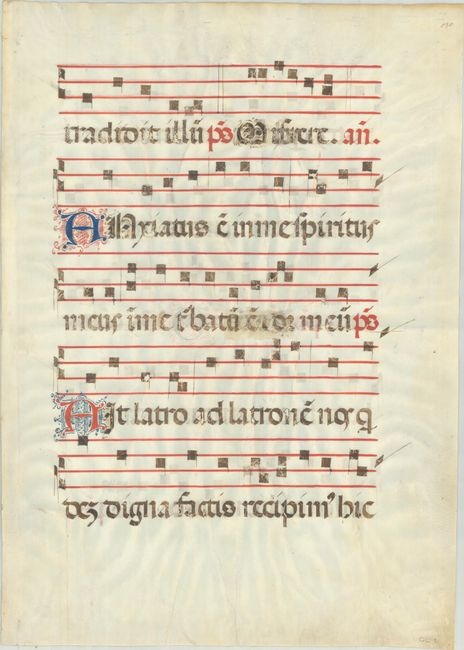 itradidit illū p̄s Miserere. an̄.
ANxiatus ē in me spiritus
meus in me t̄batū ē cor meū p̄s
Ait latro ad latronē nos q
dez digna factis recipim᾿ hic